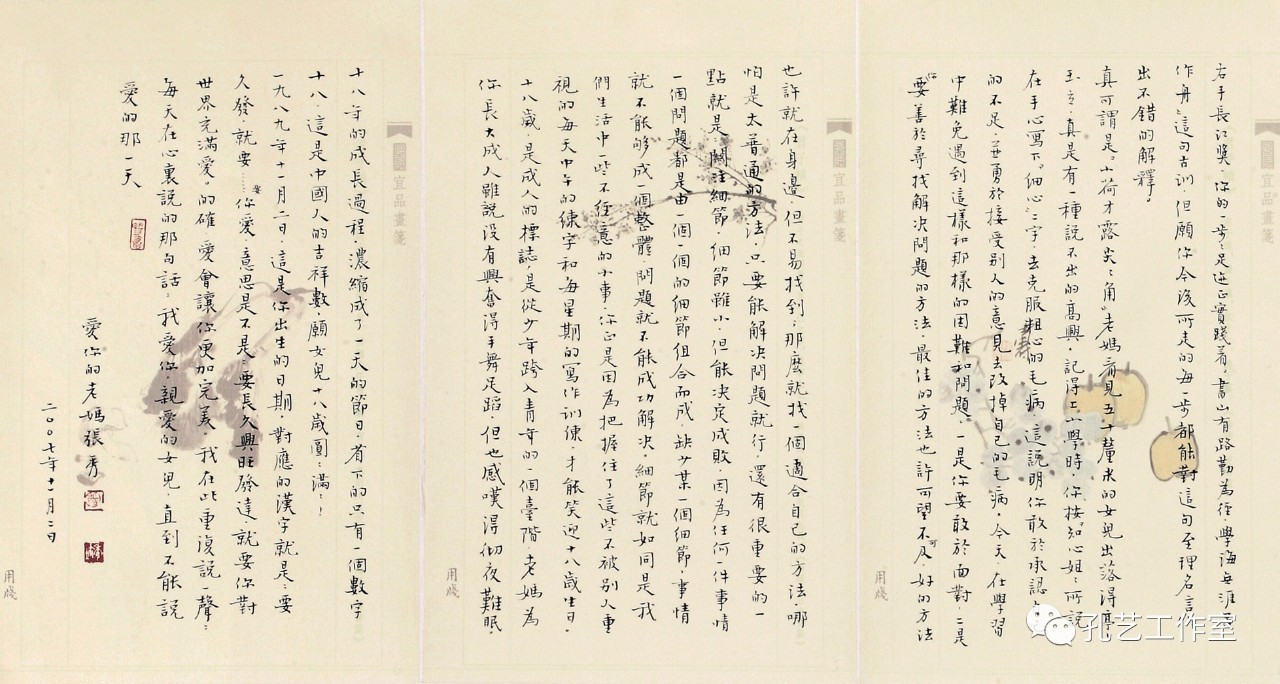 右手長江獎，你的一步一足迹正實踐着，書山有路勤為徑，學海無涯苦
作舟，這句古訓，但願你今後所走的每一步都能對這句至理名言，
出不錯的解釋。
真可謂是，小荷才露尖尖角，老媽看見五十釐米的女兒出落得亭亭
玉立，真是有一種說不出的高興，記得上小學時，你按“知心姐姐”所說
在手心寫下“細心”二字，去克服粗心的毛病，這説明你敢於承認
的不足，並勇於接受別人的意見去改掉自己的毛病，今天，在學習
中難免遇到這樣和那樣的困難和問題，一是你要敢於面對，二是
你要善於尋找解決問題的方法，最佳的方法也許可望不可及，好的方法
也許就在身邊，但不易找到；那麼就找一個適合自己的方法，哪
怕是太普通的方法，只要能解決問題就行，還有很重要的一
點就是，關注細節，細節雖小，但能決定成敗，因為任何一件事情
一個問題都是由一個一個的細節組合而成，缺少某一個細節，事情
就不能夠成一個整體，問題就不能成功解決，細節就如同是我
們生活中一些不經意的小事，你正是因為把握住了這些不被別人重
視的每天中午的練字和每星期的寫作訓練，才能笑迎十八歲生日。
十八歲，是成人的標誌，是從少年跨入青年的一個臺階，老媽為
你長大成人雖說没有興奮得手舞足蹈，但也感嘆得徹夜難眠，
十八年的成長過程，濃縮成了一天的節日，省下的只有一個數字
十八，這是中國人的吉祥數，願女兒十八歲圓圓滿滿！
一九八九年十一月二日，這是你出生的日期，對應的漢字就是：要
久發，就要……要你愛，意思是不是：要長久興旺發達，就要你對
世界充滿愛。的確，愛會讓你更加完美，我在此重復説一聲：
每天在心裏説的那句話：我愛你，親愛的女兒，直到不能説
愛的那一天
愛你的老媽張秀
二〇〇七年十一月二日
宜品畫箋
宜品畫箋
宜品畫箋
用箋
用箋
用箋
孔艺工作室